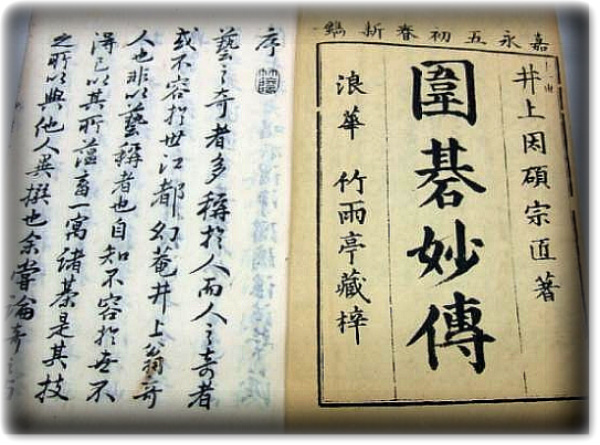 嘉永五初春新鐫
井上因碩宗匠著
圍碁妙傳
浪華 竹雨亭藏梓
序
藝之奇者多稱於人而人之奇者
或不容於世江都幻菴井上翁奇
人也非以藝稱者也自知不容於世不
得已以其所蘊畜一寓諸棊是其技
之所以與他人異撰也余嘗論奇之